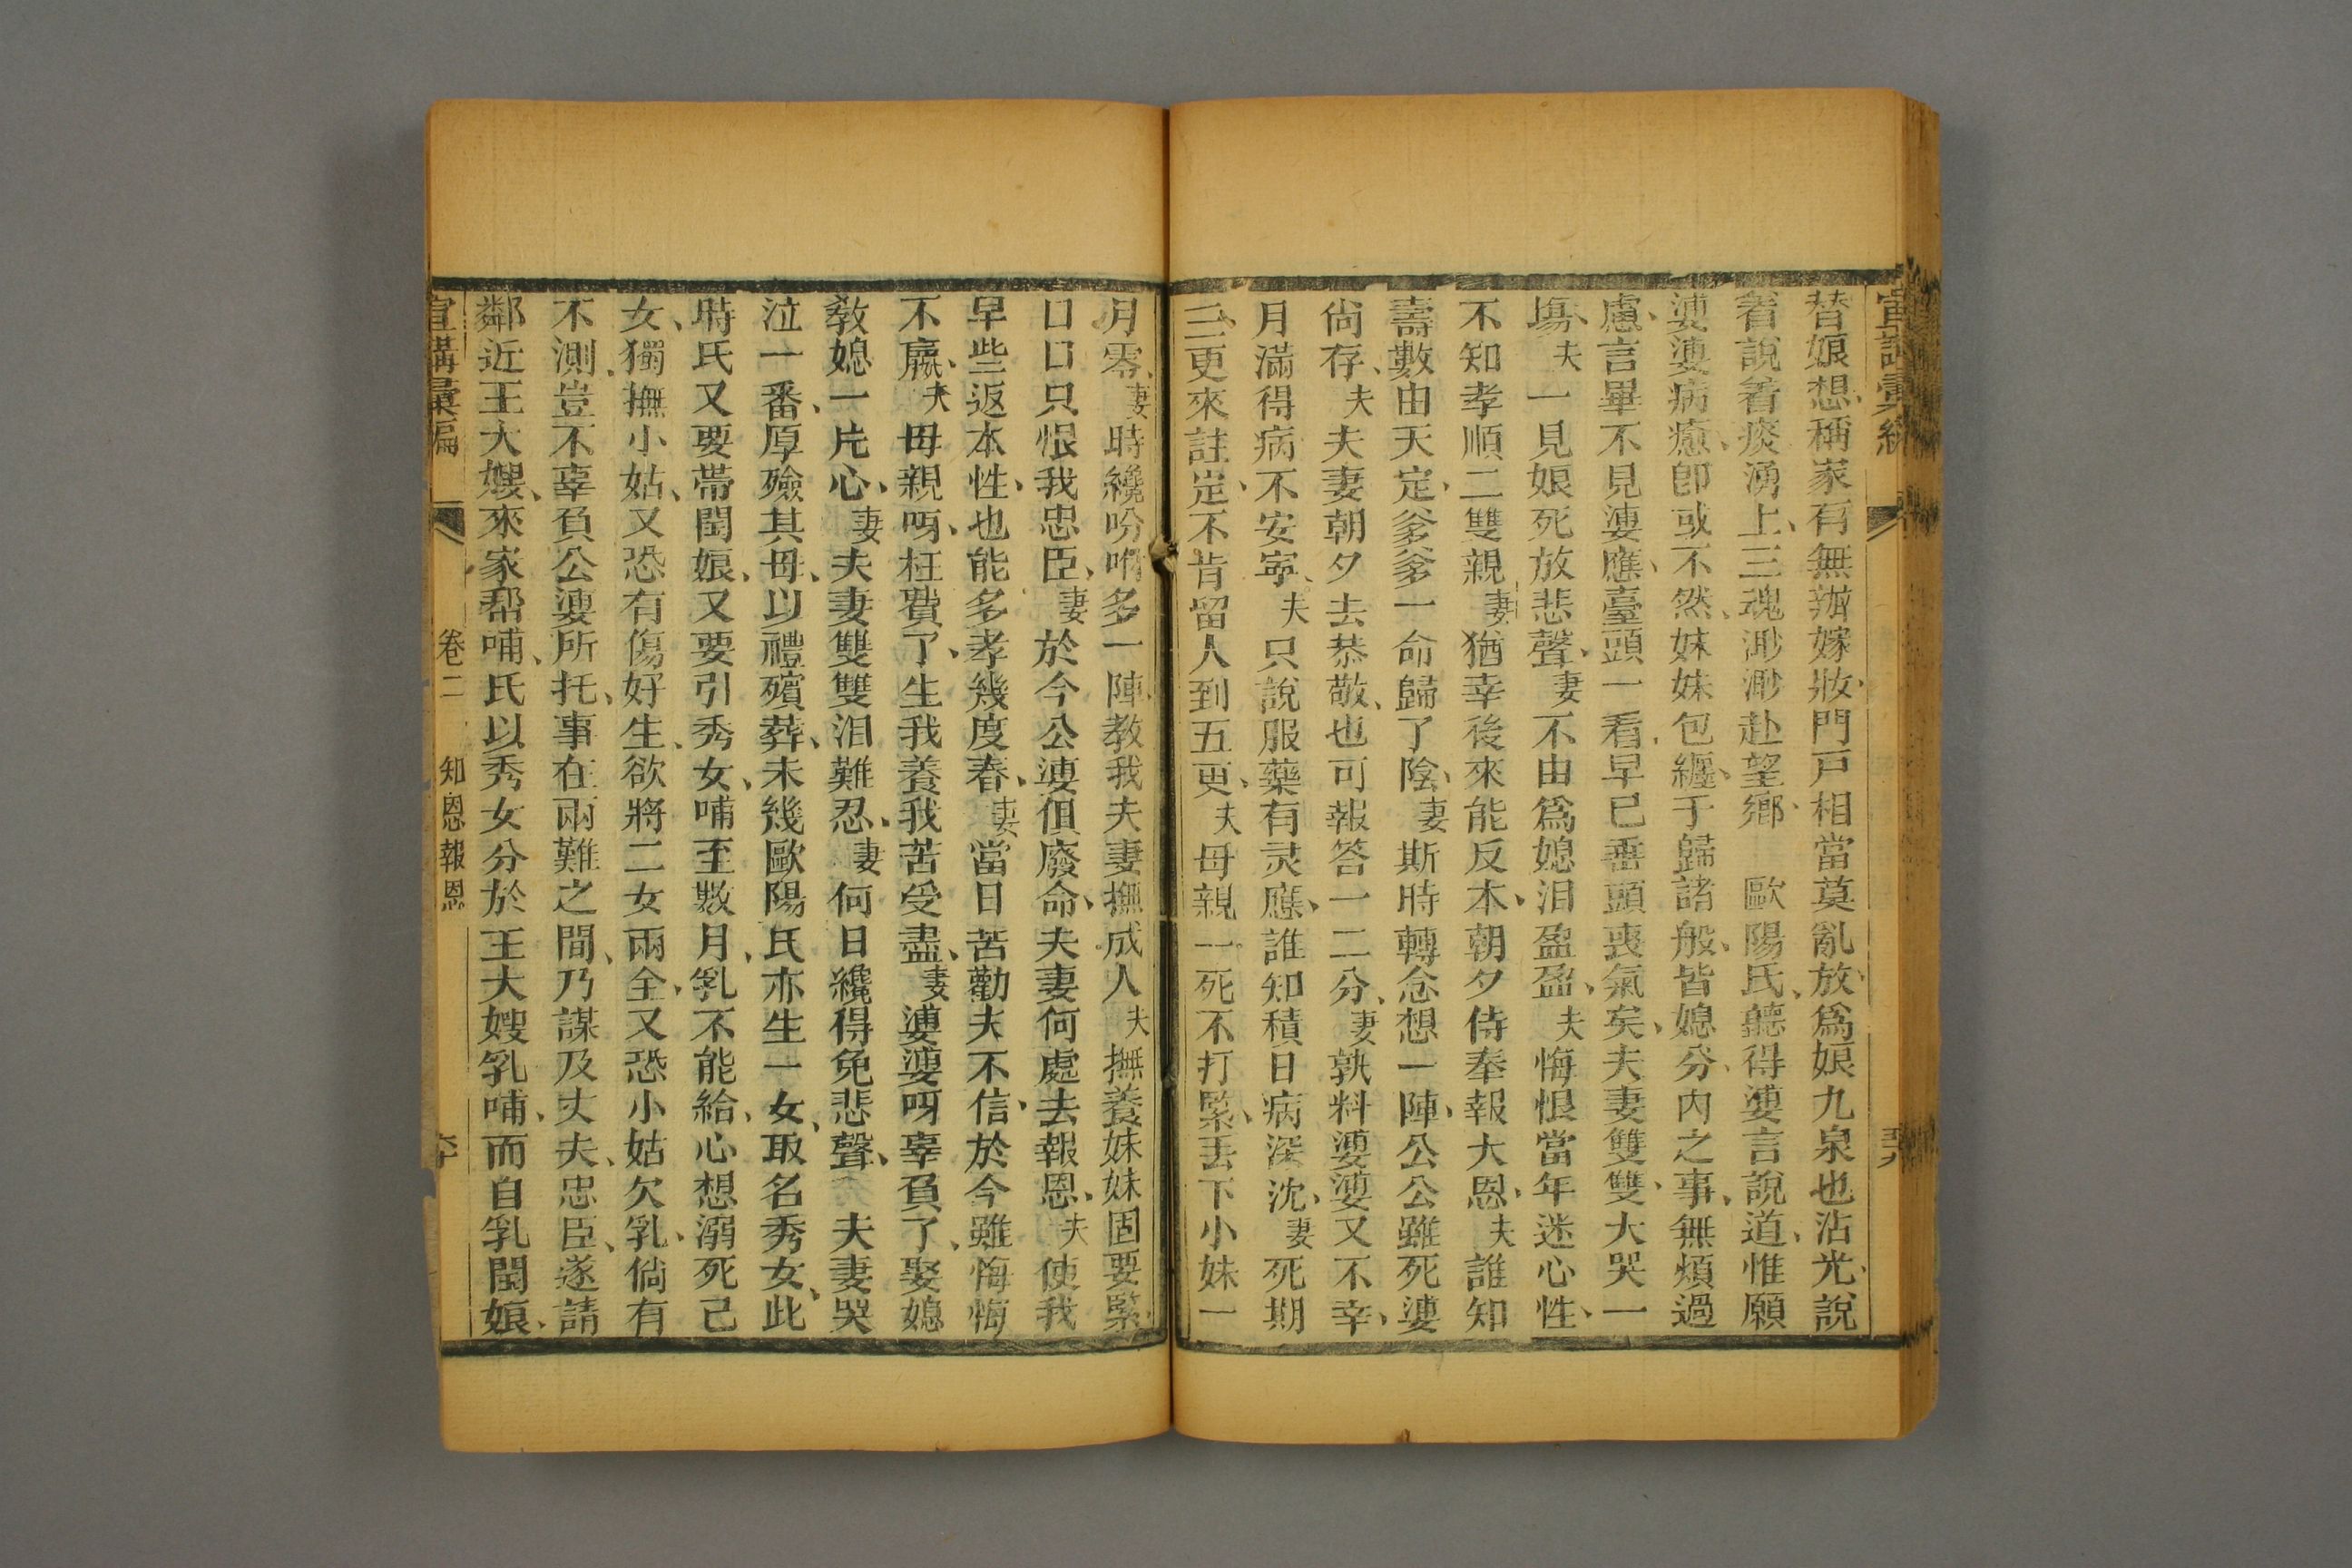 宣講彙編
替娘想、稱家有無辦嫁妝、門戶相當莫亂放、爲娘九泉也沾光、說
着說着痰湧上、三魂渺渺赴望鄉、歐陽氏、聽得婆言說道、惟願
婆婆病癒、卽或不然、妹妹包纏、于歸諸般、皆媳分內之事、無煩過
慮、言畢不見婆應、臺頭一看、早已垂頭喪氣矣、夫妻雙雙、大哭一
塲、夫一見娘死放悲聲、妻不由爲媳泪盈盈、夫悔恨當年迷心性、
不知孝順二雙親、妻猶幸後來能反本、朝夕侍奉報大恩、夫誰知
壽數由天定、爹爹一命歸了陰、妻斯時轉念想一陣、公公雖死婆
尙存、夫夫妻朝夕去恭敬、也可報答一二分、妻孰料婆婆又不幸、
月滿得病不安寧、夫只說服藥有灵應、誰知積日病深沈、妻死期
三更來註定、不肯留人到五更、夫母親一死不打緊、丟下小妹一
月零、妻時纔吩咐多一陣、教我夫妻撫成人、夫撫養妹妹固要緊、
口口只恨我忠臣、妻於今公婆俱廢命、夫妻何處去報恩、夫使我
早些返本性、也能多孝幾度春、妻當日苦勸夫不信、於今雖悔悔
不贏、夫母親呀、枉費了、生我養我苦受盡、妻婆婆呀辜負了、娶媳
敎媳一片心、妻夫妻雙雙泪難忍、妻何日纔得免悲聲、夫妻哭
泣一番、厚殮其母、以禮殯葬、未幾歐陽氏亦生一女、取名秀女、此
時氏又要帶閏娘、又要引秀女、哺至數月、乳不能給、心想溺死己
女、獨撫小姑、又恐有傷好生、欲將二女兩全、又恐小姑欠乳、倘有
不測、豈不辜負公婆所托、事在兩難之間、乃謀及丈夫、忠臣、遂請
鄰近王大嫂、來家帮哺、氏以秀女分於王大嫂乳哺、而自乳閏娘、
宣講彙編 卷二 知恩報恩